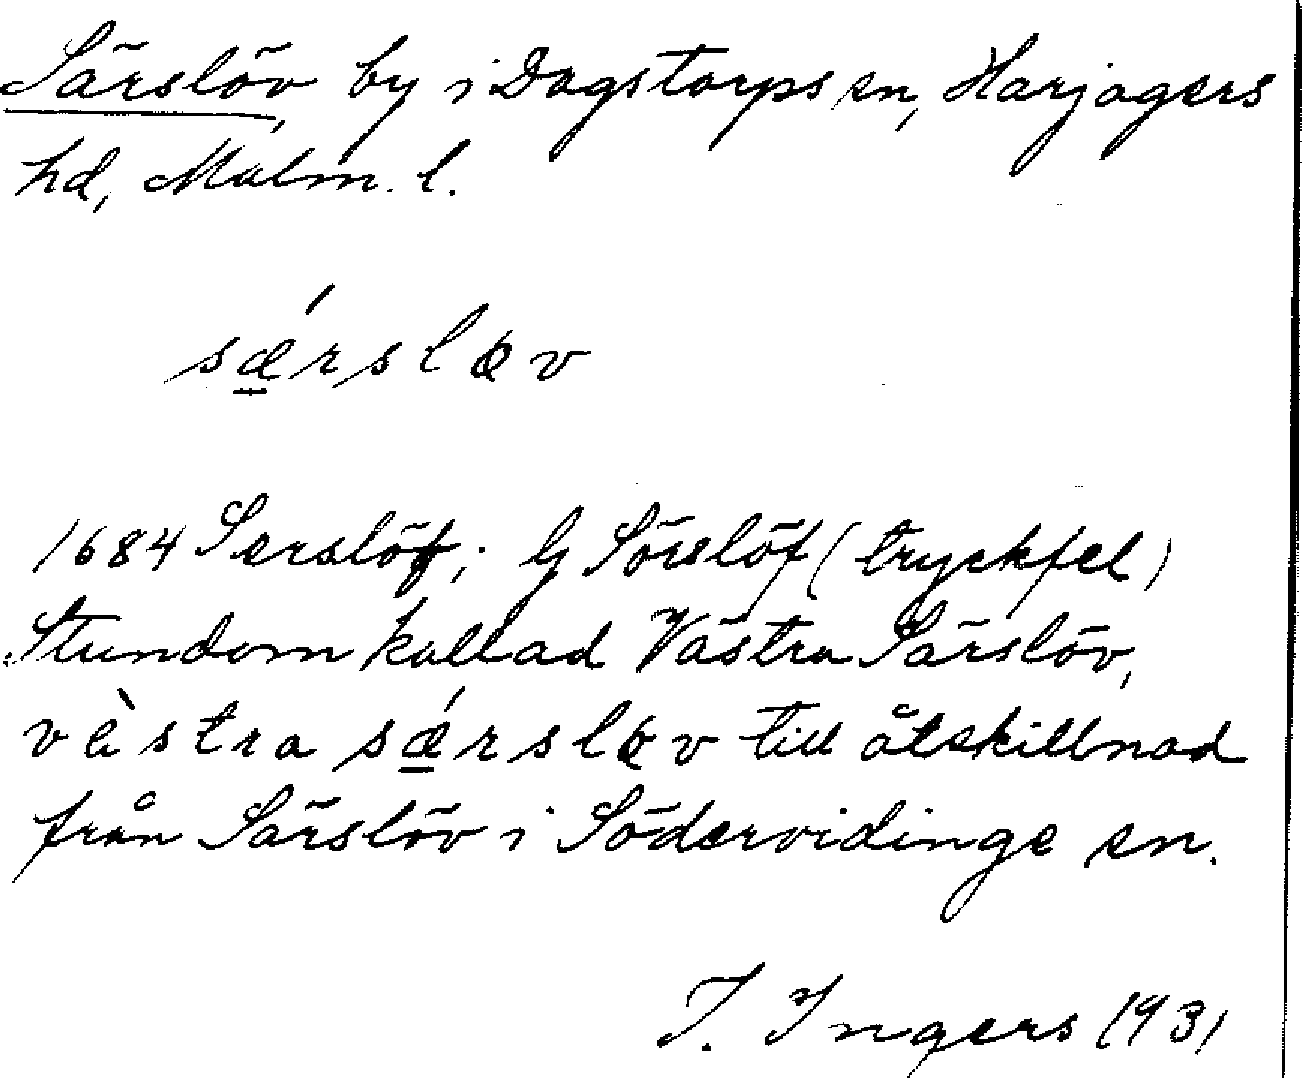 Särslöv, by i Dagstorps sn, Harjagers
hd, Malm. l.
sǽrsløv
1684 Serslöf; G Sörslöf (tryckfel)
Stundom kallad Västra Särslöv,
vèstra sǽrsløv till åtskillnad
från Särslöv i Södervidinge sn.
I. Ingers 1931